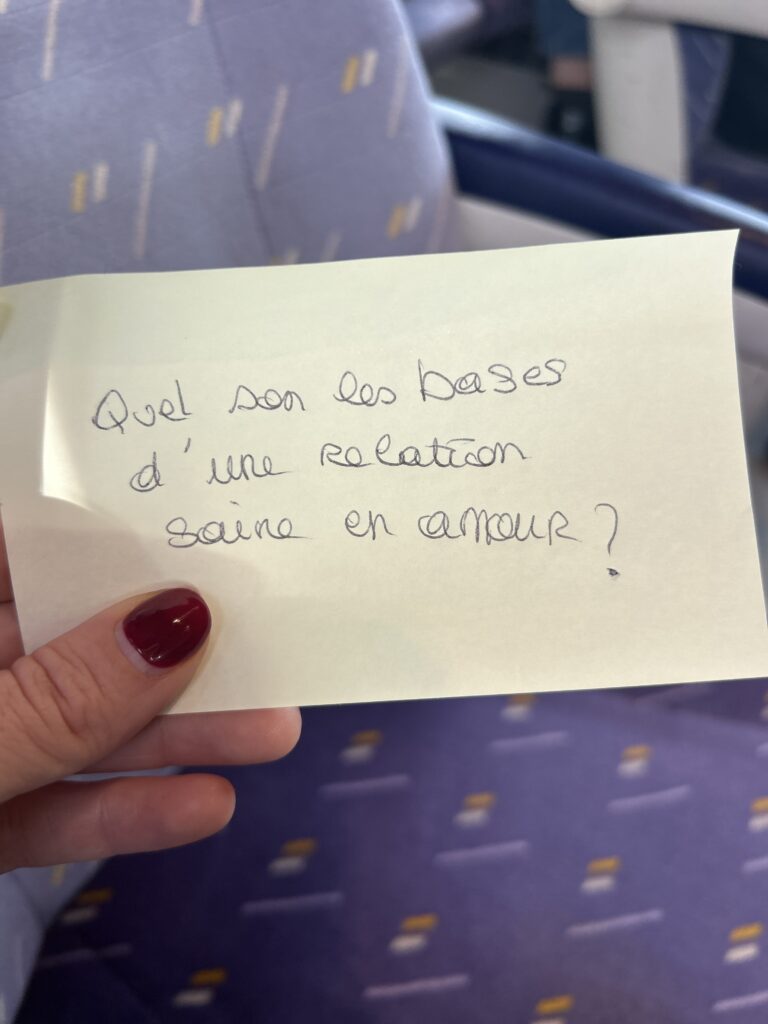 Quel son les bases
d'une relation
saine en amour ?